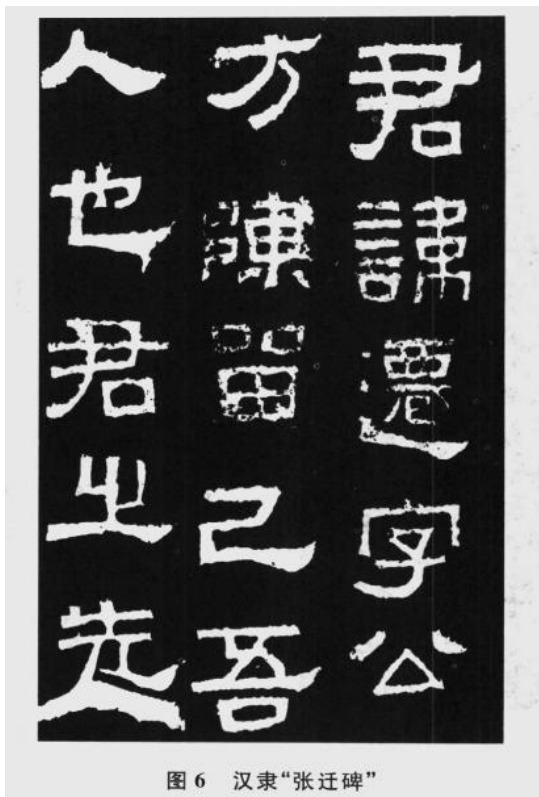 君諱遷字公
方陳留己吾
人也君之先
图 6 汉隶“张迁碑”